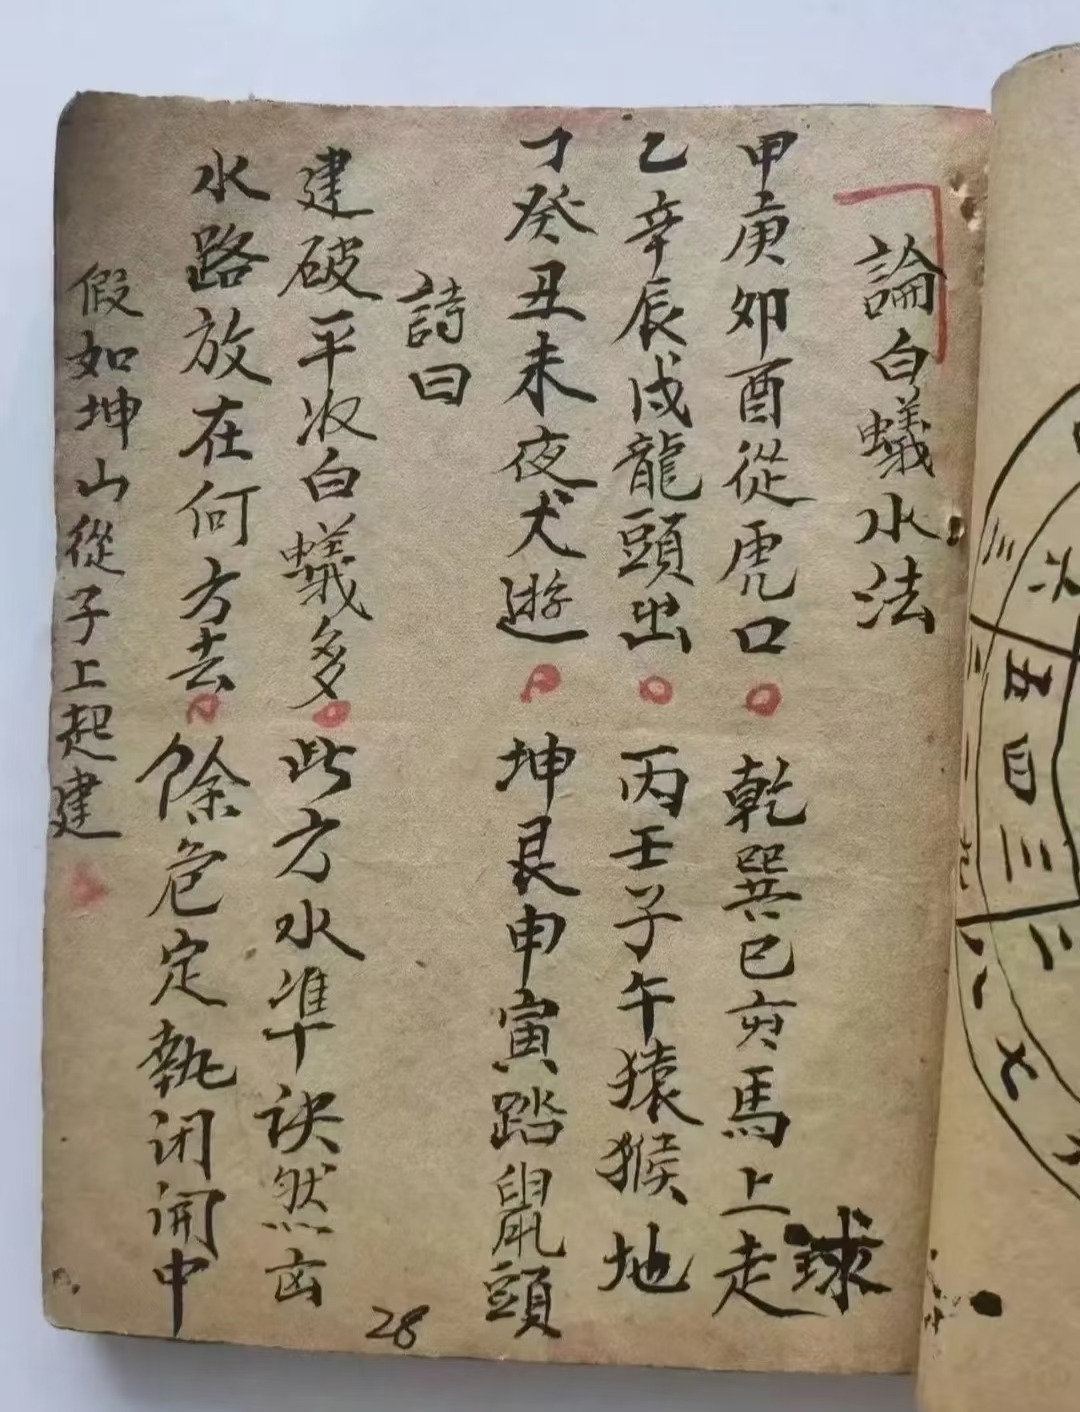 論白蟻水法
甲庚卯酉從虎口 乾巽巳亥馬上走
球
乙辛辰戌龍頭出 丙壬子午猿猴地
丁癸丑未夜犬遊 坤艮申寅踏鼠頭
詩曰
建破平收白蟻多 此方水準訣然凶
水路放在何方去 除危定執闭開中
假如坤山從子上起建
28
五四三二
三二一九八七